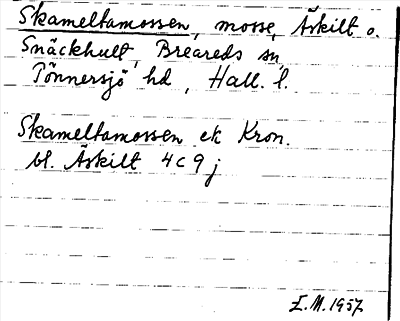 Skameltamossen, mosse, Äskilt o.
Snäckhult, Breareds sn,
Tönnersjö hd, Hall. l.
Skameltamossen ek Kron.
bl. Äskilt 4c9j
E.M. 1957